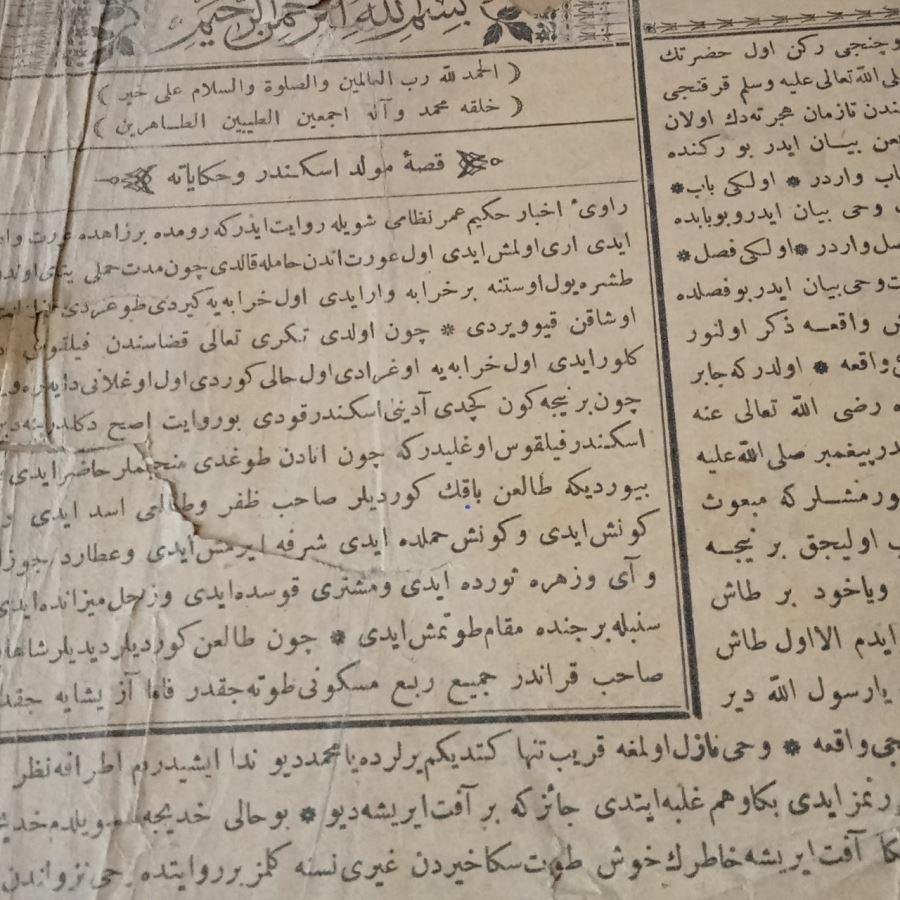 بسم الله الرحمن الرحيم
( الحمد لله رب العالمين والصلوة والسلام على خير )
( خلقه محمد وآله اجمعين الطيبين الطـاهرين )
قصۀ مولد اسكندر وحكاياته
راوئ اخبار حكيم عمر نظامى شويله روايت ايدر كه رومده بر زاهده عورت وار
ايدى ارى اولمش ايدى اول عورت اندن حامله قالدى چون مدت حملى يتدى
طشره يول اوستنه بر خرابه وار ايدى اول خرابه يه كيردى طوغردى
اوشاقن قيو ويردى * چون اولدى تكرى تعالى قضاسندن فيلقوس
كلور ايدى اول خرابه يه اوغرادى اول حالى كوردى اول اوغلانى دايه يه
چون بر نيجه كون كچدى آدينى اسكندر قودى بو روايت اصح دكلدر
اسكندر فيلقوس اوغليدر كه چون انادن طوغدى منجملر حاضر ايدى
بيورديكه طالعن باقك كورديلر صاحب ظفر وطالعى اسد ايدى و
كونش ايدى وكونش حملده ايدى شرفه ايرمش ايدى وعطارد جوزا
و آى وزهره ثورده ايدى ومشترى قوسده ايدى وزحل ميزانده ايدى
سنبله برجنده مقام طوتمش ايدى * چون طالعن كورديلر ديديلر شاها
صاحب قراندر جميع ربع مسكونى طوته جقدر فاما آز يشايه جقدر
وچنجى ركن اول حضرتك
لى الله تعالى عليه وسلم قرقنجى
ندن تا زمان هجرته دك اولان
عن بيـان ايدر بو ركنده
اب واردر * اولكى باب *
وحى بيان ايدر وبو بابده
صل واردر * اولكى فصل *
ت وحى بيان ايدر بو فصلده
واقعـه ذكر اولنور
واقعه * اولدر كه جابر
رضى الله تعالى عنه
در پيغمبر صلى الله عليه
ورمشـلر كه مبعوث
اوليجق بر نيجـه
وياخود بر طاش
ايدم الا اول طاش
يارسول الله دير
جى واقعه * وحى نازل اولمغه قريب تنها كتديكم يرلرده يا محمد ديو ندا ايشيدردم اطرافه نظر
رنمز ايدى بكا وهم غلبه ايتدى جائز كه بر آفت ايريشه ديو * بو حالى خديجه
كا آفت ايريشه خاطرك خوش طوت سكا خيردن غيرى نسنه كلمز بر روايتده